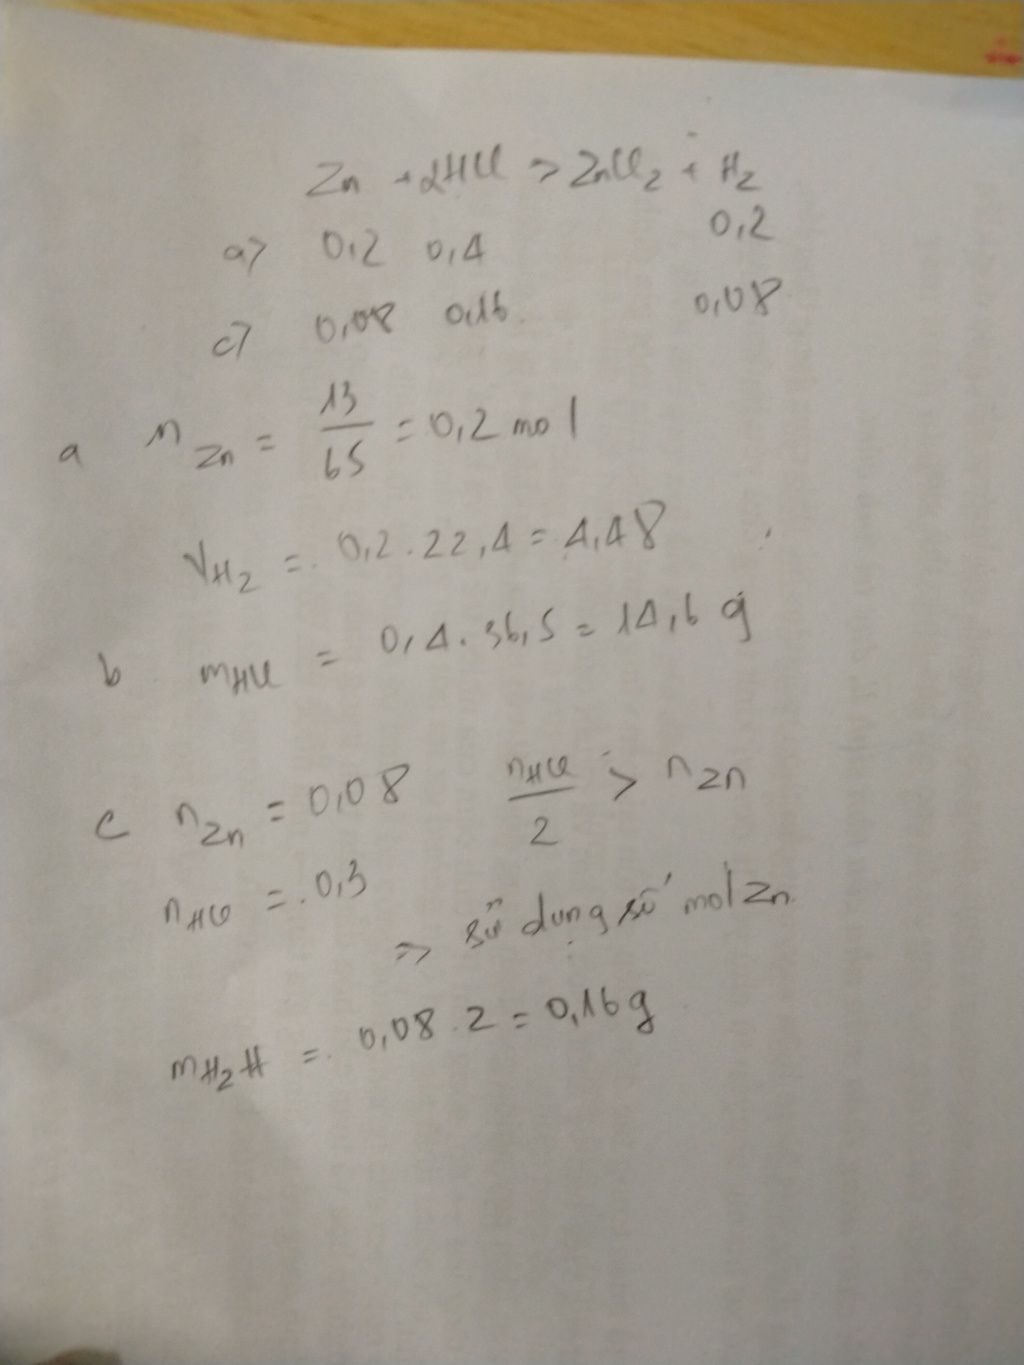 Zn + 2HCl > ZnCl2 + H2
a> 0,2 0,4 0,2
c> 0,08 0,16 0,08
a nZn = 13/65 = 0,2 mol
VH2 = 0,2 . 22,4 = 4,48
b mHCl = 0,4 . 36,5 = 14,6 g
c nZn = 0,08 nHCl/2 > nZn
nHCl = 0,3
=> sử dụng số mol Zn
mH2 = 0,08 . 2 = 0,16 g